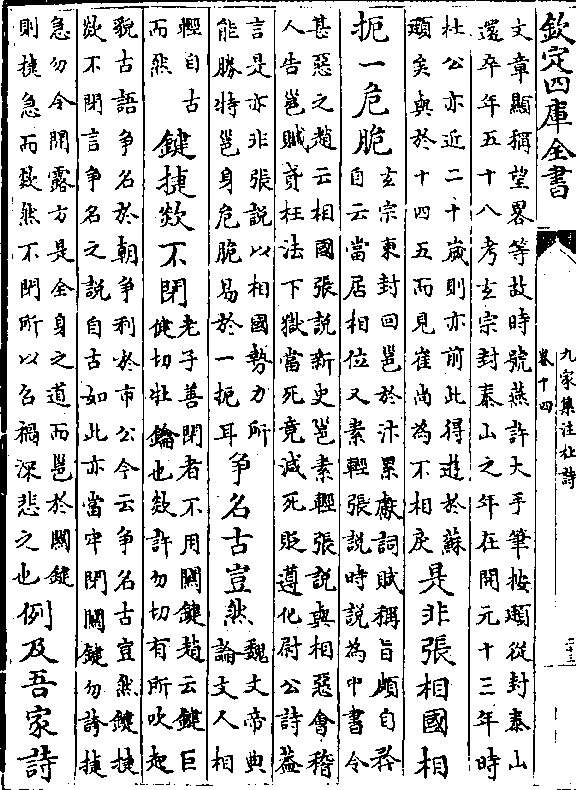 欽定四庫全書
九家集注杜詩
卷十四
文章顯稱望畧等故時號燕許大手筆按頲從封泰山
還卒年五十八考玄宗封泰山之年在開元十三年時
杜公亦近二十歲則亦前此得遊於蘇
頲矣與於十四五而見崔尚為不相戾
是非張相國相
扼一危脆
玄宗東封回邕於汴累獻詞賦稱旨頗自矜
自云當居相位又素輕張說時說為中書令
甚惡之趙云相國張說新史邕素輕張說與相惡會稽
人告邕贓貸枉法下獄當死竟減死貶遵化尉公詩葢
言是亦非張說以相國勢力所
能勝特邕身危脆易於一扼耳
爭名古豈然
魏文帝典
論文人相
輕自古
而然
鍵捷欻不閉
老子善閉者不用關鍵趙云鍵巨
健切壯鑰也欻許勿切有所吹起
貌古語爭名於朝爭利於市公今云爭名古豈然鍵捷
欻不閉言爭名之說自古如此亦當牢閉關鍵勿誇捷
急勿令開露方是全身之道而邕於關鍵
則捷急而欻然不閉所以召禍深悲之也
例及吾家詩